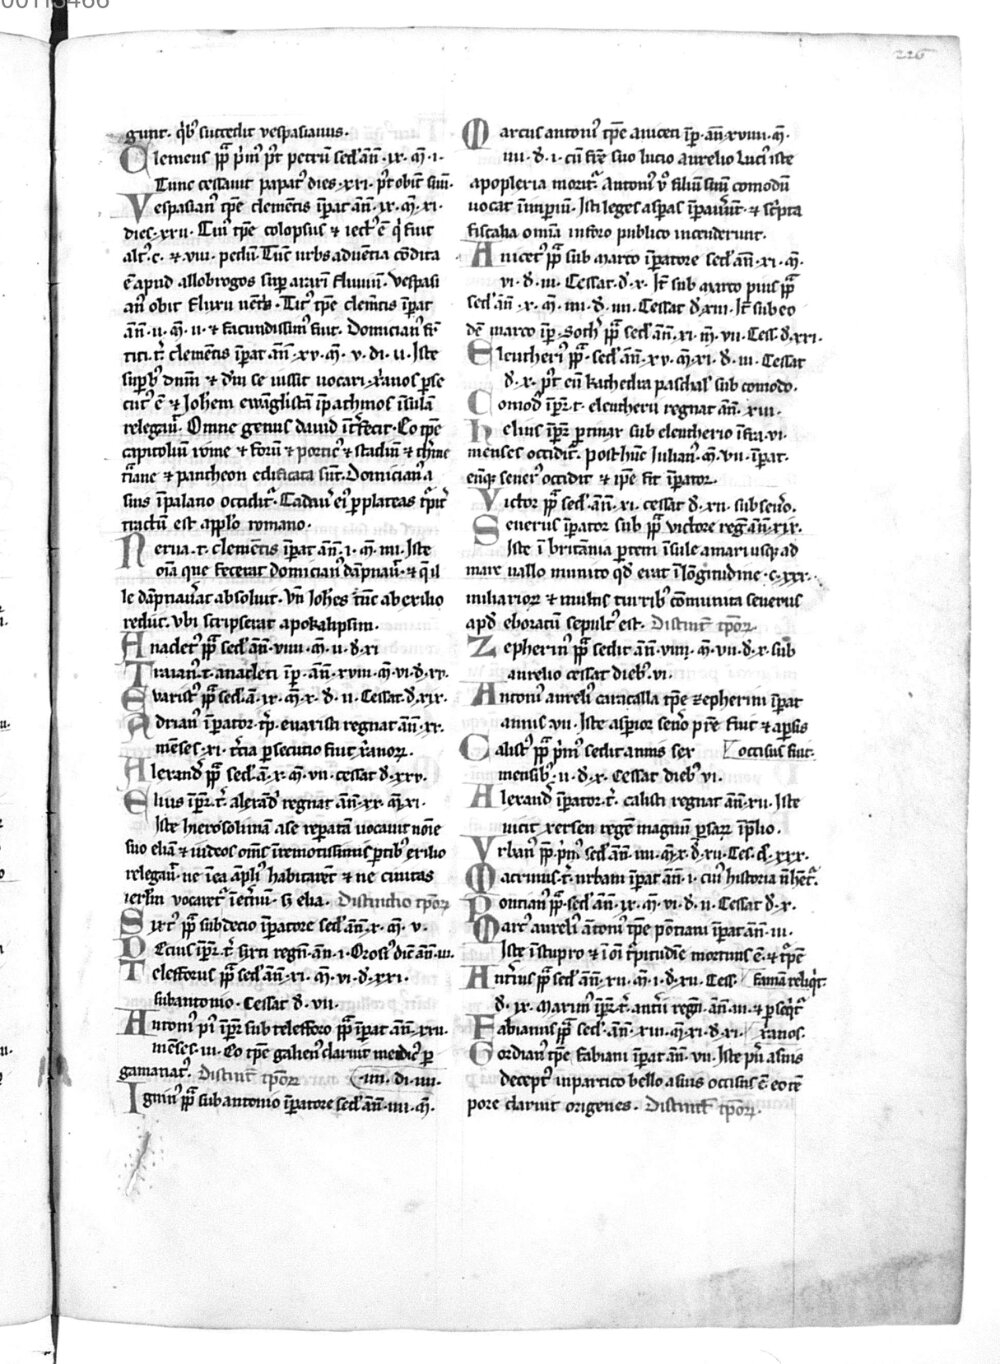 226
gunt. qͥbꝰ succedit vespasianus.
Clemens pp̄ p̄mꝰ pꝰt petrum sed' ann̄. ix. m̄. i.
Tunc cessauit papatꝰ dies. xxi. pꝰt obitū suū.
Vespasianꝰ tp̄e clemētis īꝑat ann̄. ix. m̄. xi.
dies. xxii. Huiꝰ tp̄e colopsus
altꝰ. c. et. viii. pedū. Tūc urbs aduentia cōdita
ē apud allobrogos suꝑ ararim fluuiū. Vespasi
anꝰ obiit fluxu uētris. Titꝰ tp̄e clemētis īꝑat
ann̄. ii. m̄. ii. et facundissimꝰ fuit. Domicianꝰ fr̄
titi. t̄. clemētis īꝑat ann̄. xv. m̄. v. di. ii. Iste
suꝑbꝰ dn̄m et dm̄ se iussit uocari. xp̄ianos ꝑse
cutꝰ ē et Ioh̄em ewāgl̄istam ī pathmos īsulā
relegauit. Omne genus dauid īterfecit. Eo tp̄e
capitoliū rome et forū et porticꝰ et stadiū et
et pantheon edificata sūt. Domicianꝰ a
suis ī palatio occiditͬ. Cadauer eiꝰ ꝑ plateas
tractū est aposto romano.
Nerua. t. clemētis īꝑat ann̄. i. m̄. iiii. Iste
oīa que fecerat domicianꝰ dāpnauit. et qͤ il
le dāpnauerat absoluit. Vn̄ Ioh̄es tūc ab exilio
rediit. vbi scripserat apokalipsim.
Anacletꝰ pp̄ sed' ann̄. viiii. m̄. ii. d̄. xi
Traianꝰ. t. anacleti īp̄. ann̄. xviii. m̄. vi. d̄. xv.
Evaristꝰ pp̄ sed'. a. ix. m̄. x. d̄. ii. Cessat. d̄. xix.
Adrianꝰ īꝑator. tp̄. euaristi regnat ann̄. xx.
mēses. xi. tercia ꝑsecutio fuit xp̄ianoꝝ.
Alexand' pp̄ sed'. a. x. m̄. vii. cessat d̄. xxv.
Elius īp̄r. t̄. alexād' regnat ann̄. xx. m̄. xi.
Iste hierosolimā a se reꝑatā uocauit noīe
suo eliā et iudeos om̄s ī remotissimis ꝑtibꝰ exilio
relegauit. ne ī ea āplius habitarēt et ne ciuitas
ierl̄m vocaretͬ ī eternū. sꝫ elia. Distinctio tp̄oꝝ
Sixtꝰ pp̄ sub decio īꝑatore sed' ann̄. x. m̄. v.
Decius īp̄r. t̄ sixti regn̄. an̄. i. Orosiꝰ dic̄ ann̄. iii.
Telesforus pp̄ sed' ann̄. xi. m̄. vi. d̄. xxi.
sub antonio. Cessat d̄. vii.
Antoniꝰ piꝰ īp̄r sub telesforo pp̄ īꝑat ann̄. xxii.
mēses. iii. Eo tp̄e galienꝰ claruit medicꝰ ꝑ
gamariatꝰ. Distinct̄ tp̄oꝝ
Iginꝰ pp̄ sub antonio īꝑatore sed' ann̄. iiii. m̄.
iiii. di. iiii.
Marcus antoniꝰ tp̄e aniceti īp̄. ann̄. xviiii. m̄.
iiii. d̄. i. cū fr̄e suo lucio aurelio. Luciꝰ iste
apoplexia moritͬ. Antoniꝰ v̊ filiū suū comodū
uocat ī imꝑiū. Isti leges asꝑas et scripta
fiscalia omnia in foro publico incenderunt.
Anicetꝰ pp̄ sub marco īꝑatore sed' ann̄. xi. m̄.
vi. d̄. iii. Cessat. d̄. x. It̄ sub marco pius pp̄
sed' ann̄. x. m̄. iiii. d̄. iiii. Cessat d̄. xiii. It̄ sub eo
dē marco īp̄. Sother pp̄ sed' ann̄. xi. m̄. vii. Cess. d̄. xxi.
Eleutheriꝰ pp̄. sed' ann̄. xv. m̄. xi. d̄. iii. Cessat
d̄. x. pꝰt eū kathedra paschal' sub comodo.
Comodꝰ īp̄r. t. eleutherii regnat ann̄. xiii.
Helius īp̄r ꝑtinax sub eleutherio īfra. vi.
menses occiditͬ. Post hūc Iulianꝰ. m̄. vii. īꝑat.
eūqꝫ seuerꝰ occidit et ip̄e fit īꝑator.
Victor pp̄ sed' ann̄. xi. cessat d̄. xii. sub seuero.
Seuerus īꝑator sub pp̄ victore regn̄ ann̄. xix.
Iste ī britānia ꝑtem īsule a mari usqꝫ ad
mare uallo muniuit qd̄ erat ī lōgitudine. c. xxx.
miliarioꝝ et multis turribꝰ cōmunita seuerus
apd̄ eboracū sepultꝰ est. Distinct̄ tp̄oꝝ.
Zepherinꝰ pp̄ sedit ann̄. viiii. m̄. vii. d̄. x. sub
aurelio cessat diebꝰ. vi.
Antoniꝰ aureliꝰ caracalla tp̄e zepherini īꝑat
annis. vii. Iste asꝑior seuero pr̄e fuit et a ꝑsis
occisus fuit.
Calistꝰ pp̄ p̄mꝰ sedit annis sex
mensibꝰ. ii. d̄. x. Cessat diebꝰ vi.
Alexand' īꝑator. t̄. calisti regnat ann̄. xii. Iste
uicit xersen regē magnū ꝑsaꝝ ī p̄lio.
Vrbanꝰ pp̄. p̄mꝰ sed' ann̄. iiii. m̄. x. d̄. xii. Ces. d̄. xxx.
Macrinus. t̄. urbani īꝑat ann̄. i. cuiꝰ historia n̄ hetͬ.
Poncianꝰ pp̄. sed' ann̄. ix. m̄. vi. d̄. ii. Cessat d̄. x.
Marcꝰ aureliꝰ ātoniꝰ tp̄e pōtiani īꝑat ann̄. iii.
Iste ī stupro et ī oī turpitudīe mortuus ē. et turpē
famā reliqͥt.
Antherius pp̄ sed' ann̄. xii. m̄. i. d̄. xii. Cess.
d̄. ix. Marimꝰ īp̄r. t̄. antēri regn̄. ann̄. iii. et ꝑseqͥtͬ
xp̄ianos.
Fabianus pp̄ sed' ann̄. xiii. m̄. xi. d̄. xi.
Gordianꝰ tp̄e fabiani īꝑat ann̄. vii. Iste a suis
deceptꝰ in partico bello a suis occisus ē eo tē
pore claruit origenes. Distinct̄ tp̄oꝝ.